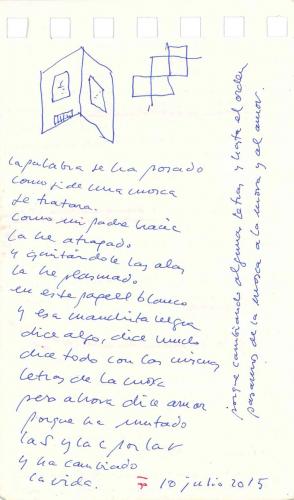 la palabra se ha posado
como si de una mosca
se tratara.
como mi padre hacía
la he atrapado
y quitándole las alas
la he plasmado
en este papel blanco
y esa manchita negra
dice algo, dice mucho
dice todo con las mismas
letras de la mosca
pero ahora dice amor
porque ha mutado
la s y la c por la r
y ha cambiado
la vida.
10 julio 2015
porque cambiando algunas letras y hasta el orden
pasamos de la mosca a la mora y al amor.